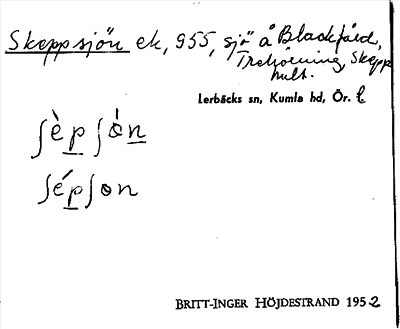 Skeppsjön ek, 955, sjö å Blackfård,
Trehörning, Skepp
hult.
Lerbäcks sn, Kumla hd, Ör. l
ʃèp ʃȯ̀n
ʃépʃɵn
BRITT-INGER HÖJDESTRAND 1952